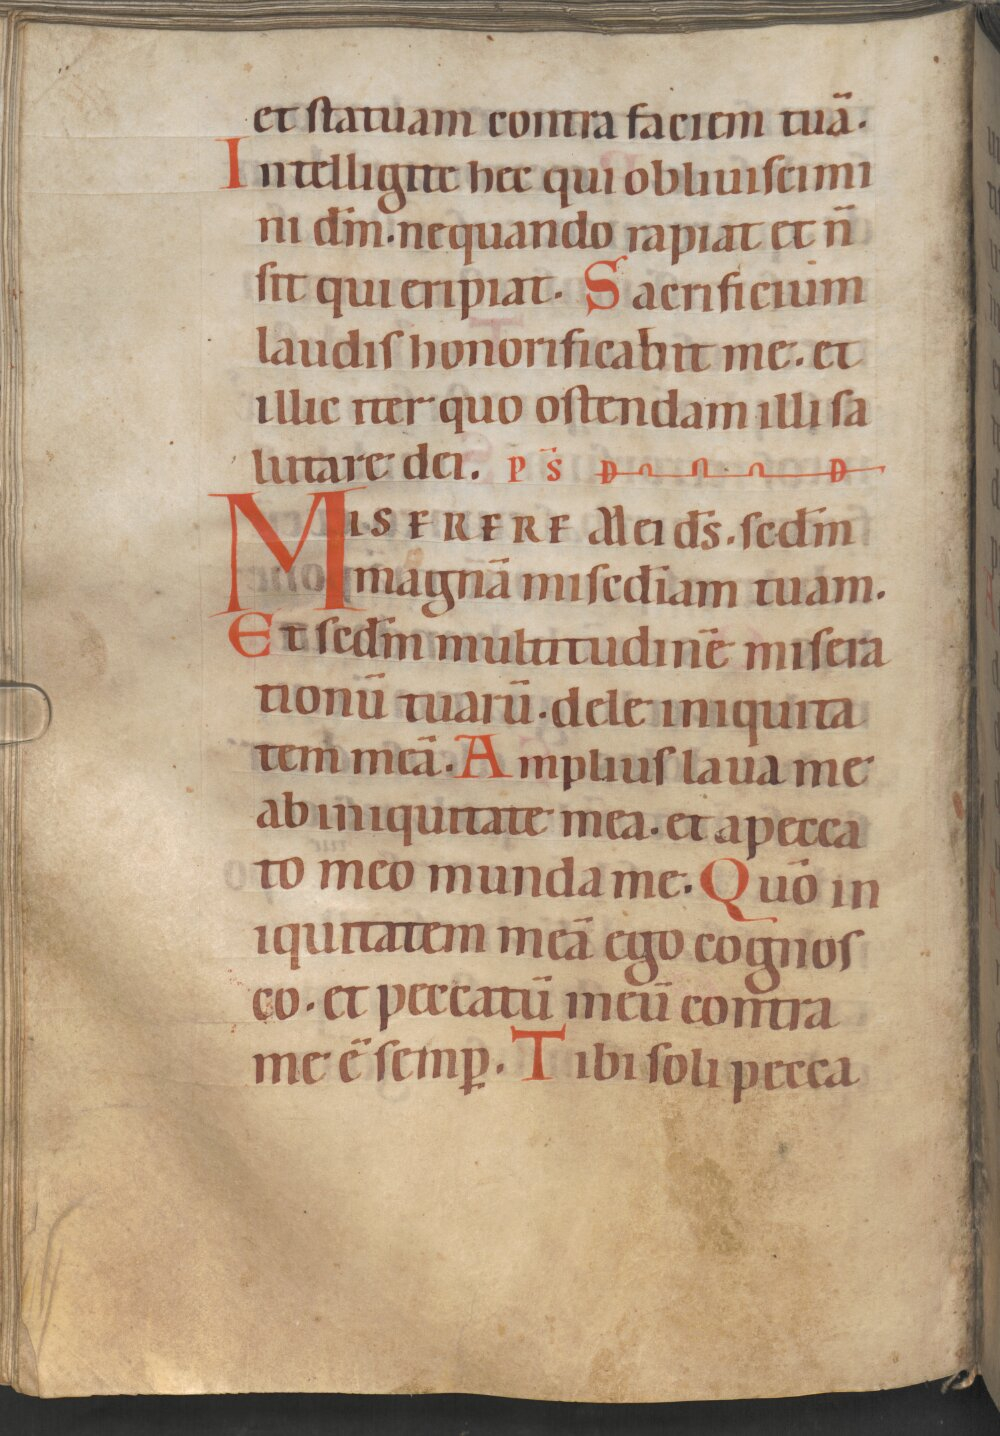 et statuam contra faciem tuā.
Intelligite hec qui obliuiscimi
ni dm̄. nequando rapiat et n̄
sit qui eripiat. Sacrificium
laudis honorificabit me. et
illic iter quo ostendam illi sa
lutare dei. P S̄ D
MISERERE Mei ds̄. sedm̄
magnā misediam tuam.
Et sedm̄ multitudinē misera
tionū tuarū. dele iniquita
tem meā. Amplius laua me
ab iniquitate mea. et a pecca
to meo munda me. Quō in
iquitatem meā ego cognos
co. et peccatū meū contra
me ē semꝑ. Tibi soli pecca